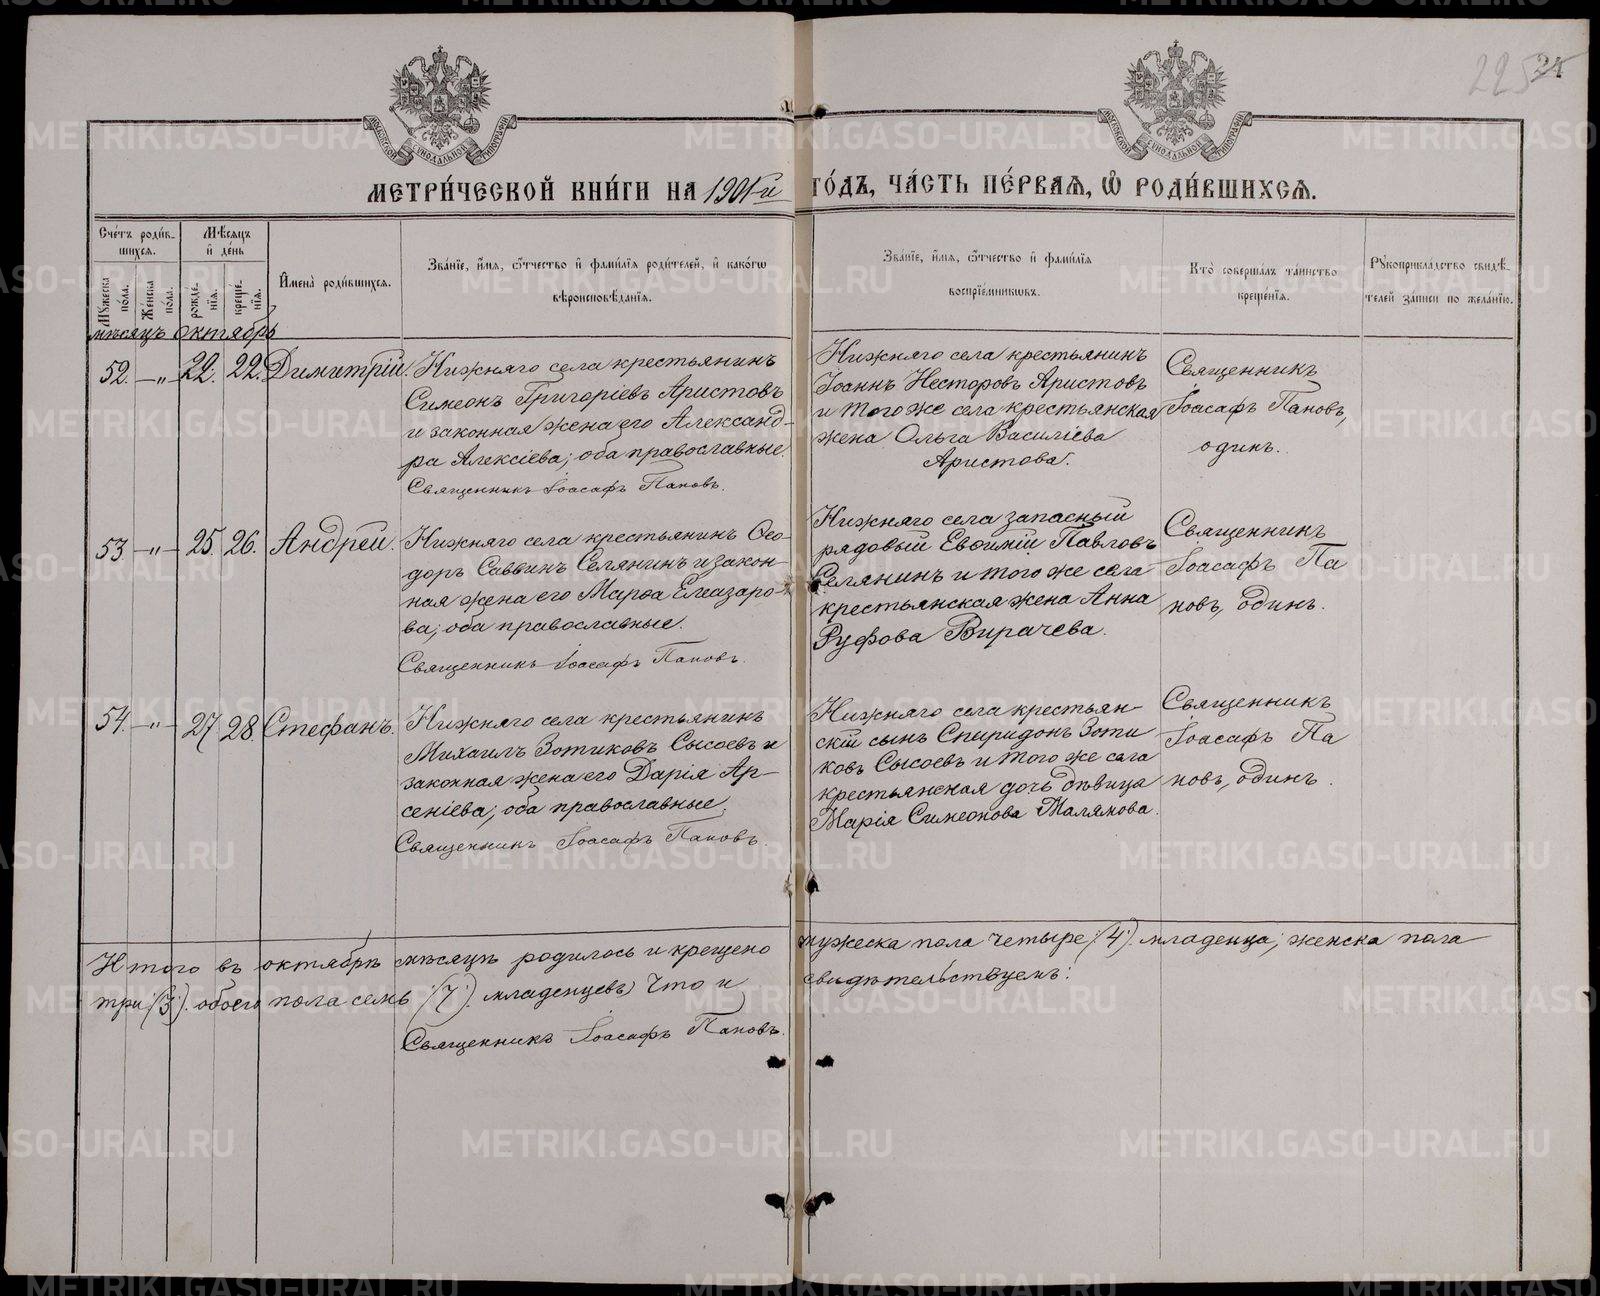 225 24
МЕТРИ́ЧЕСКОЙ КНИ́ГИ НА 1901-й ГО́ДЪ, ЧА́СТЬ ПЕ́РВАѦ, Ѽ РОДИ́ВШИХСѦ.
Сче́тъ роди́в-
шихся.
Мѣ́сяцъ
и҆ де́нь
Мꙋ́жеска по́ла.
Же́нска по́ла.
рожде́нїѧ.
креще́нїѧ.
И҆мена̀ роди́вшихся.
Зва́нїе, и҆́мя, ѻ҆́тчество и҆ фами́лїѧ роди́телей, и҆ како́гѡ
вѣроисповѣ́данїѧ.
Зва́нїе, и҆́мя, ѻ҆́тчество и҆ фами́лїѧ
воспрїе́мникѡвъ.
Кто̀ соверша́лъ та́инство
креще́нїѧ.
Рꙋкоприкла́дство свидѣ́-
телей за́писи по жела́нїю.
мѣсяцъ Октябрь
52. —„— 22. 22. Димитрій.
Нижняго села крестьянинъ
Симеонъ Григоріевъ Аристовъ
и законная жена его Александ-
ра Алексіева; оба православные.
Священникъ Іоасафъ Пановъ.
Нижняго села крестьянинъ
Іоаннъ Несторовъ Аристовъ
и того же села крестьянская
жена Ольга Василіева
Аристова.
Священникъ
Іоасафъ Пановъ,
одинъ.
53 —„— 25. 26. Андрей.
Нижняго села крестьянинъ Ѳео-
доръ Саввинъ Селянинъ и закон-
ная жена его Марѳа Елеазаро-
ва; оба православные.
Священникъ Іоасафъ Пановъ.
Нижняго села запасный
рядовый Евѳимій Павловъ
Селянинъ и того же села
крестьянская жена Анна
Руфова Вирачева.
Священникъ
Іоасафъ Па
новъ, одинъ.
54. —„— 27 28. Стефанъ.
Нижняго села крестьянинъ
Михаилъ Зотиковъ Сысоевъ и
законная жена его Дарія Ар-
сеніева; оба православные.
Священникъ Іоасафъ Пановъ.
Нижняго села крестьян-
скій сынъ Спиридонъ Зоти
ковъ Сысоевъ и того же села
крестьянская дочь дѣвица
Марія Симеонова Малякова.
Священникъ
Іоасафъ Па
новъ, одинъ.
Итого въ октябрѣ мѣсяцѣ родилось и крещено мужеска пола четыре (4) младенца; женска пола
три (3). обоего пола семь (7) младенцевъ) Что и свидѣтельствуемъ:
Священникъ Іоасафъ Пановъ.